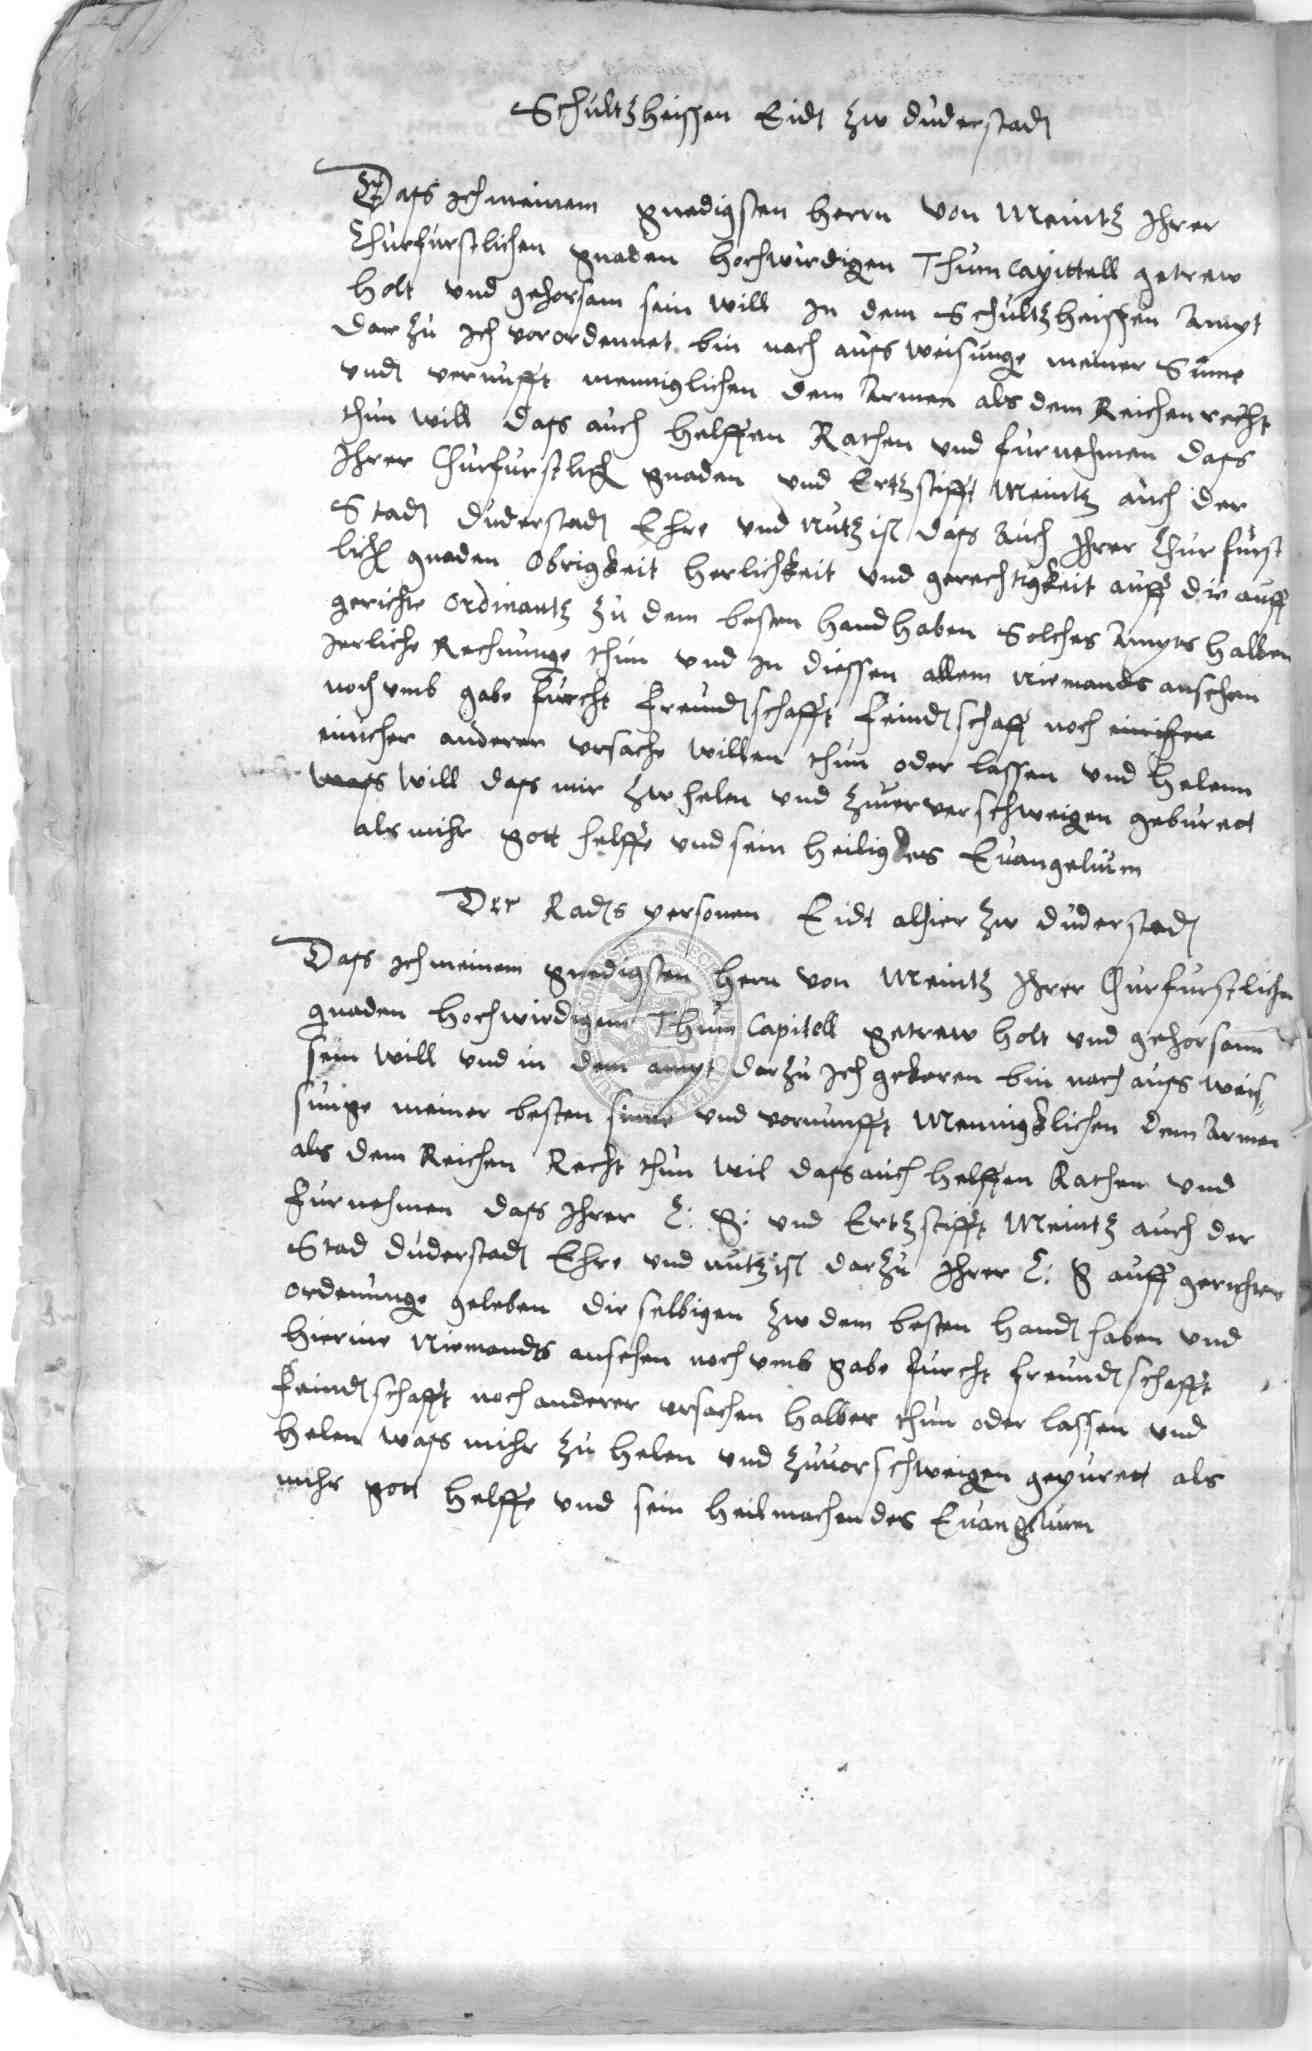 Schultzheissen Eidt zw duderstadt
Dass ich meinem gnedigsten herrn von Meintz Ihrer
Churfurstlichen gnaden hochwirdigen Thum Capittell getrew
holt und gehorsam sein will in dem Schultzheissen Ampt
dar zu Ich vorordennet bin nach auss weisunge meiner Sinne
undt vernufft menniglichen dem Armen als dem Reichen recht
thun will dass auch helffen Rathen und furnehmen dass
Ihrer Churfurstlich gnaden und Ertzstifft Meintz auch der
Stadt duderstadt Ehre und Nutz ist dass Auch Ihrer Churfurst
lich gnaden Obrigkeit herlichkeit und gerechtigkeit auff die auff
gerichte Ordinantz zu dem besten handhaben Solches Ampts halben
Jerliche Rechnunge thun und in diessen allem Niemands ansehen
noch umb gabe furcht freundtschafft feindtschaff noch einicher
einicher anderer ursache willen thun oder lassen und helenn
wass will dass mir zw helen und zuververschweigen geburett
als mihr gott helffe und sein heiliges Evangelium
Der Radts personen Eidt alhier zw duderstadt
Dass ich meinem gnedigsten hern von Meintz Ihrer Churfurstlichen
gnaden hochwirdigenn Thum Capitell getrew holt und gehorsam
sein will und in dem ampt darzu Ich gekoren bin nach auss weis-
sunge meiner besten sinne und vornunfft Mennigklichen dem Armen
als dem Reichen Recht thun wil dass auch helffen Rathen und
furnehmen dass Ihrer C: G: und Ertzstifft Meintz auch der
Stad duderstadt Ehre und nutz ist darzu Ihrer C: G auff gerichte
ordenunge geleben die selbigen zw dem besten handt haben und
hierine Niemandts ansehen noch umb gabe furcht freundtschafft
feindtschafft noch anderer ursachen halber thun oder lassen und
helen wass mihr zu helen und zuvorschweigen gepurett als
mihr gott helffe und sein heilmachendes Evangelium